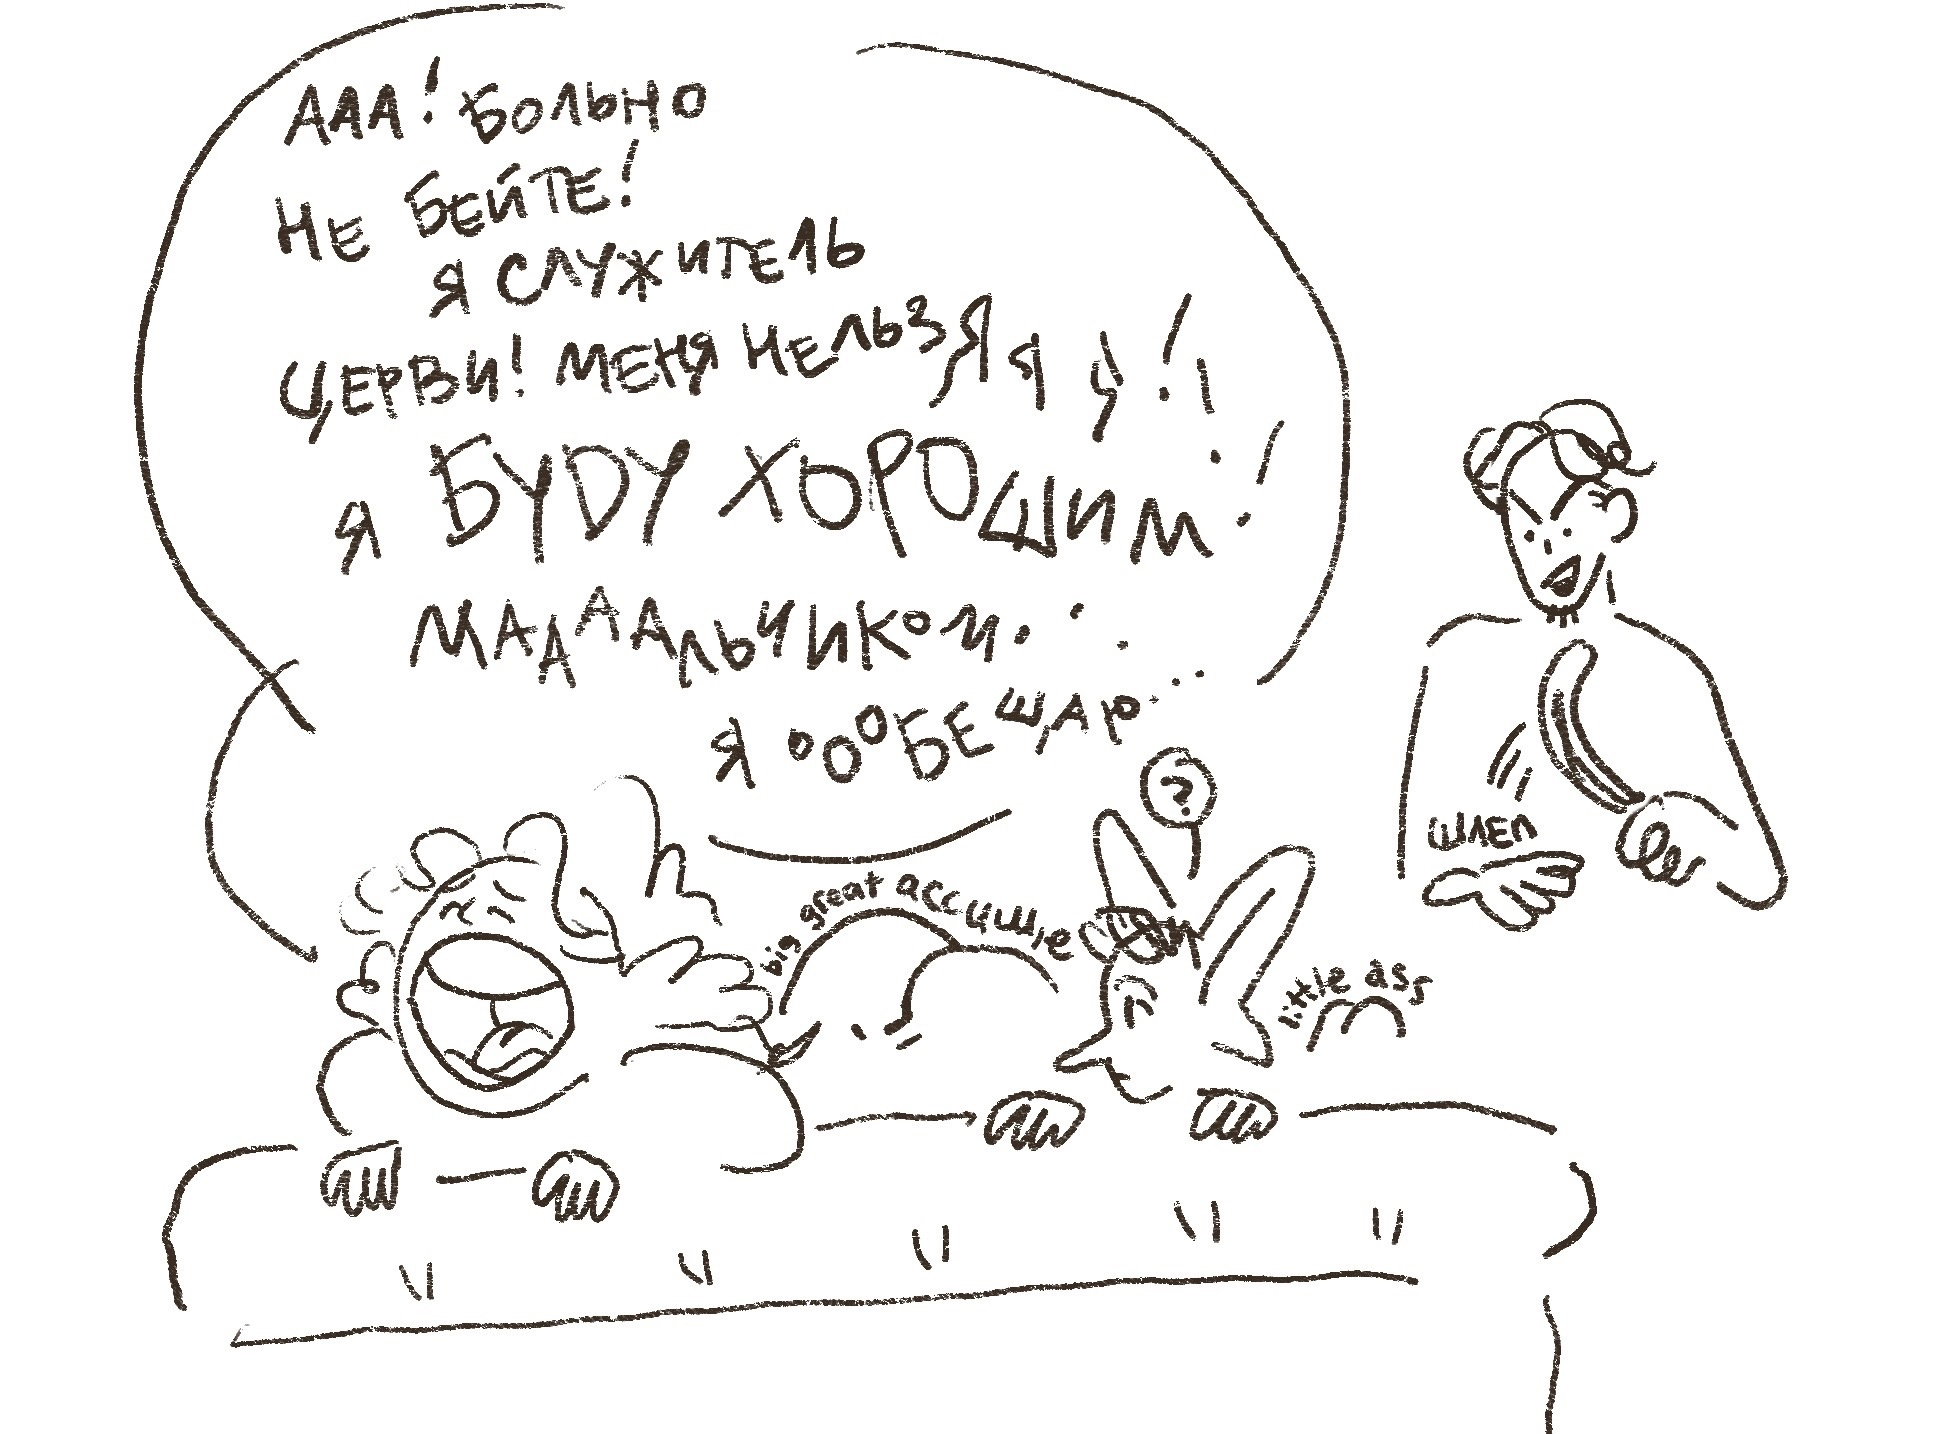 ААА! БОЛЬНО
НЕ БЕЙТЕ!
Я СЛУЖИТЕЛЬ
ЦЕРВИ! МЕНЯ НЕЛЬЗЯ Я Я!!
Я БУДУ ХОРОШИМ!
МАААААЛЬЧИКОМ...
Я ОООБЕЩАЮ...
?
ШЛЕП
big great ассцище
little ass